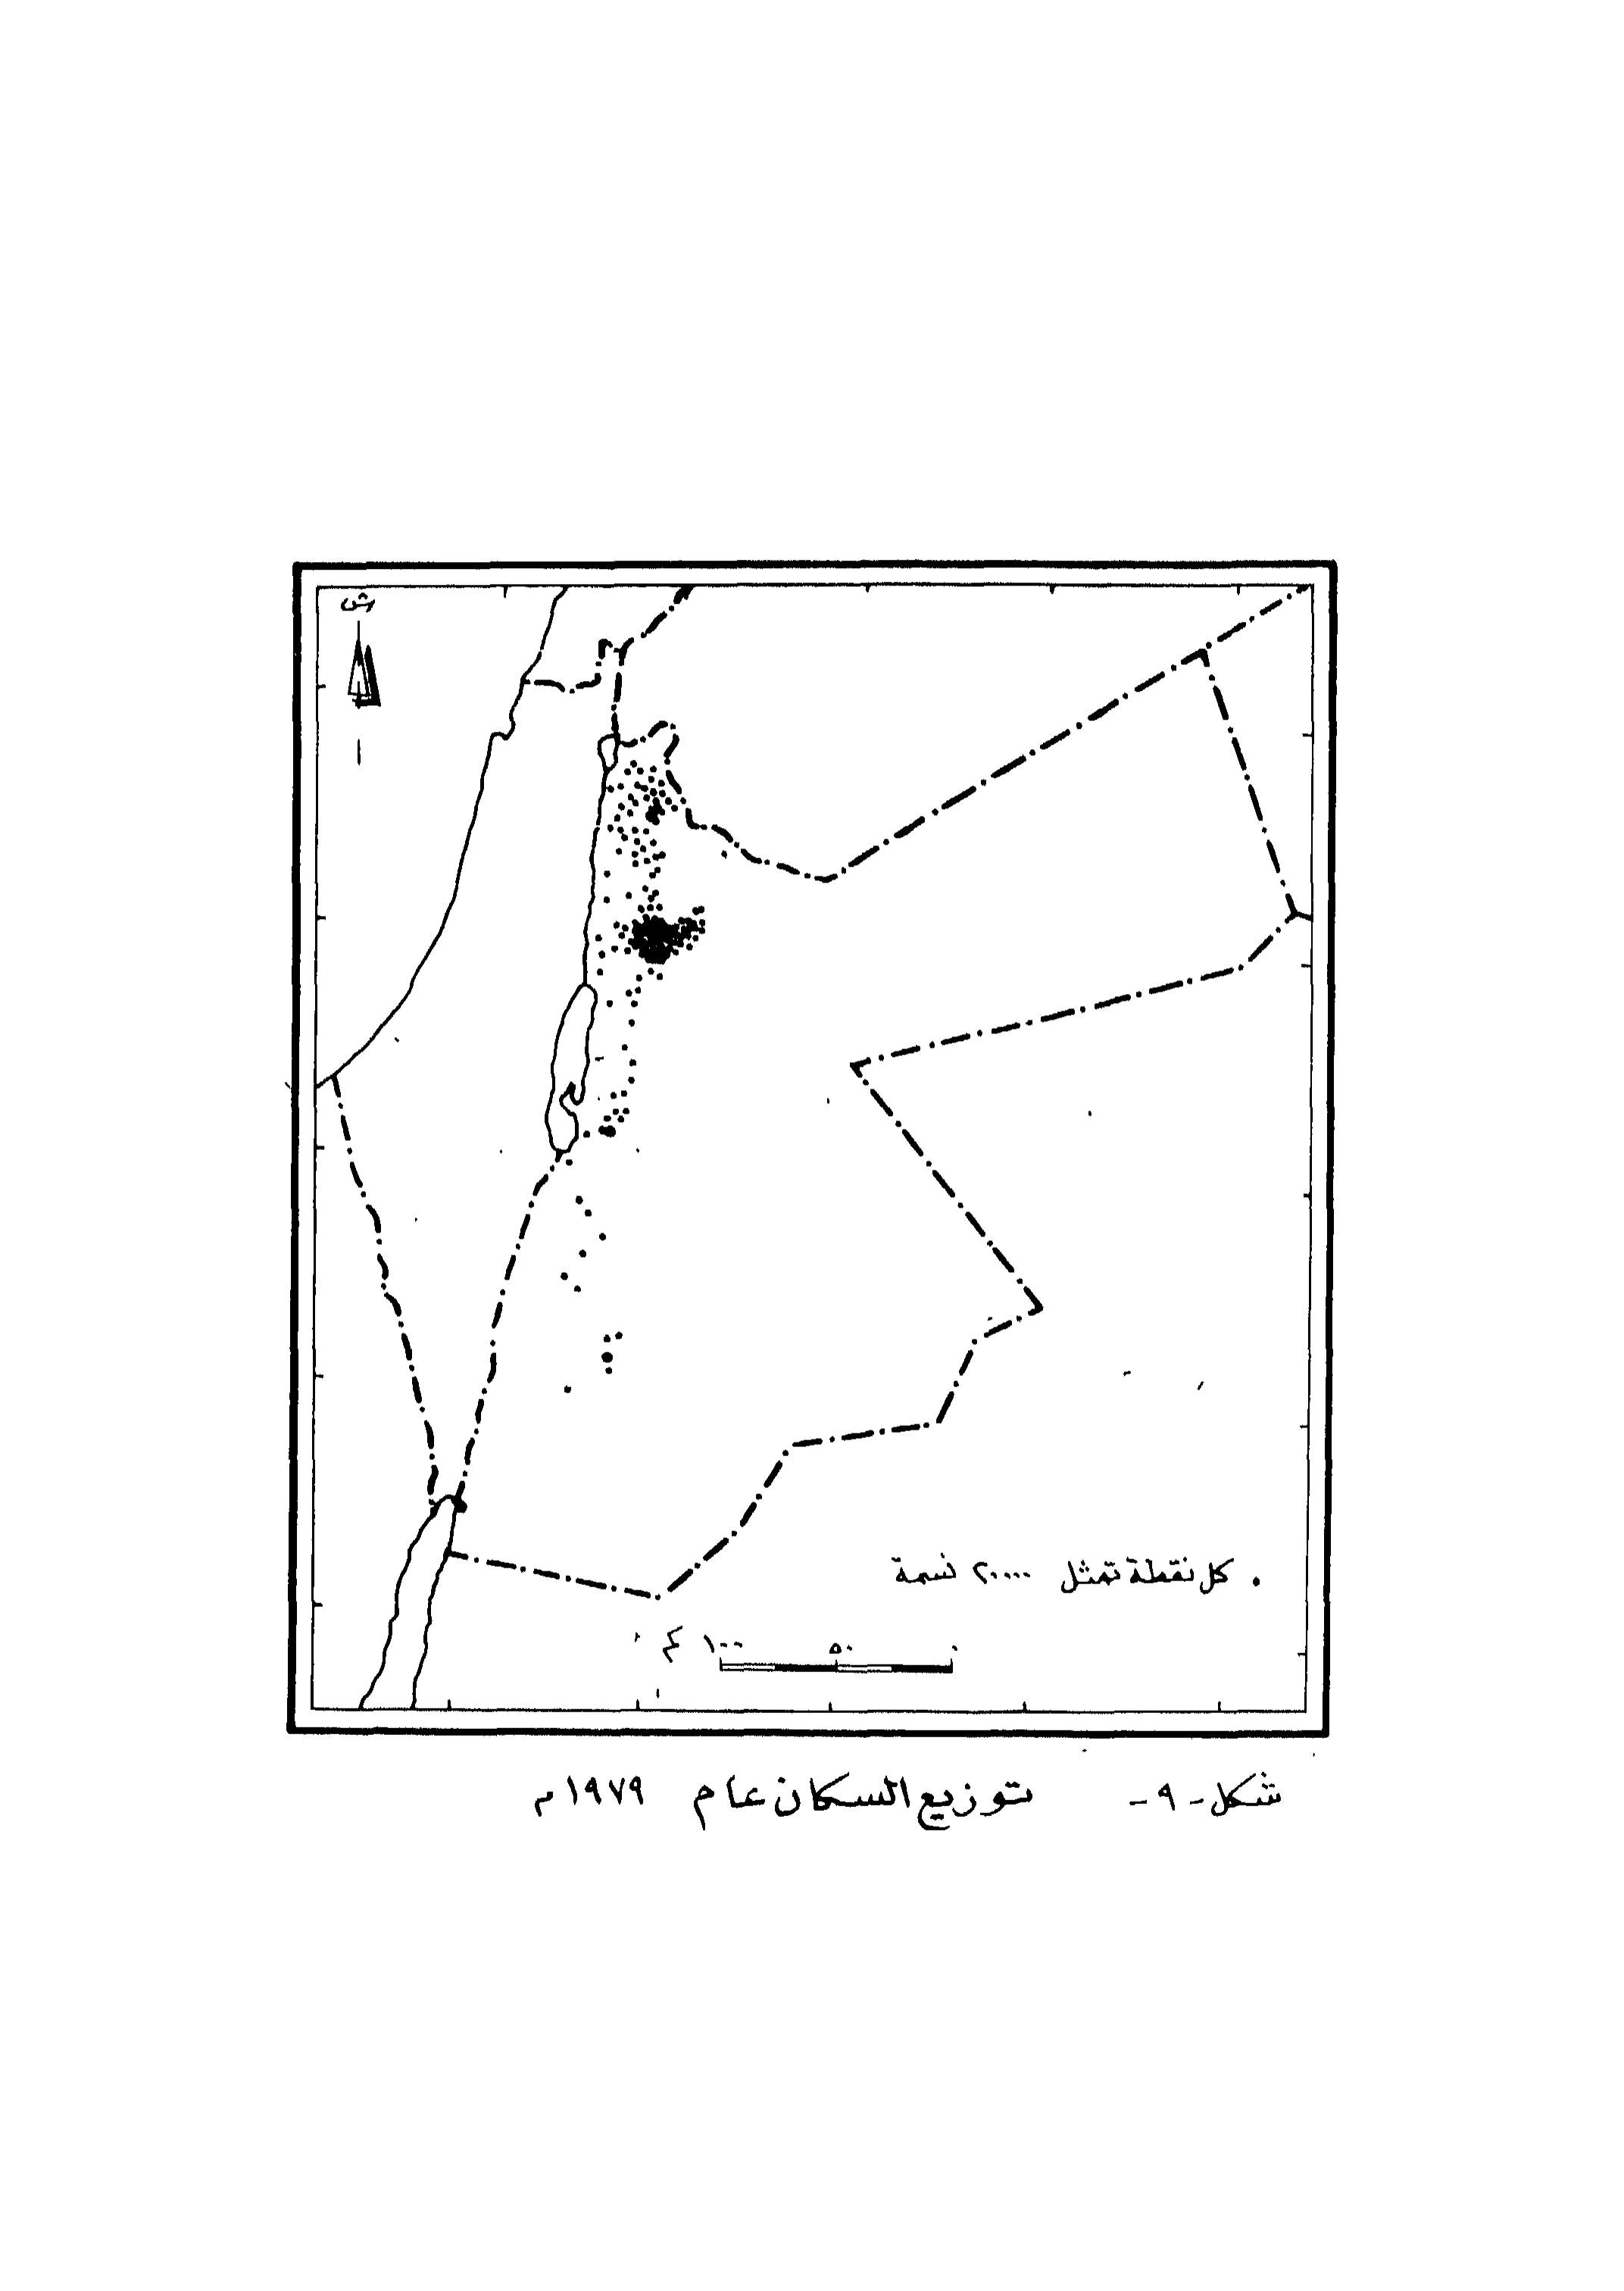 ش
. كل نقطة تمثل ٢٠٠٠٠ نسمة
٠ ٥٠ ١٠٠ كم
شكل -٩- توزيع السكان عام ١٩٧٩م